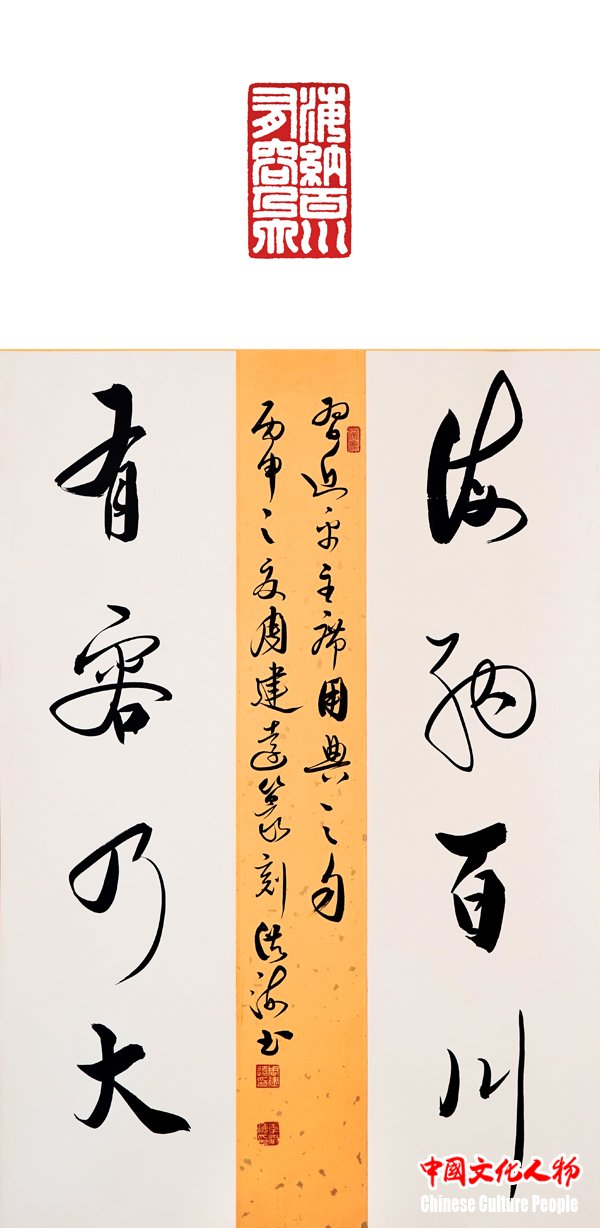 海納百川
有容乃大
海納百川
習近平主席用典之句
丙申之夏周建遠篆刻洪海书
有容乃大
中國文化人物
Chinese Culture People